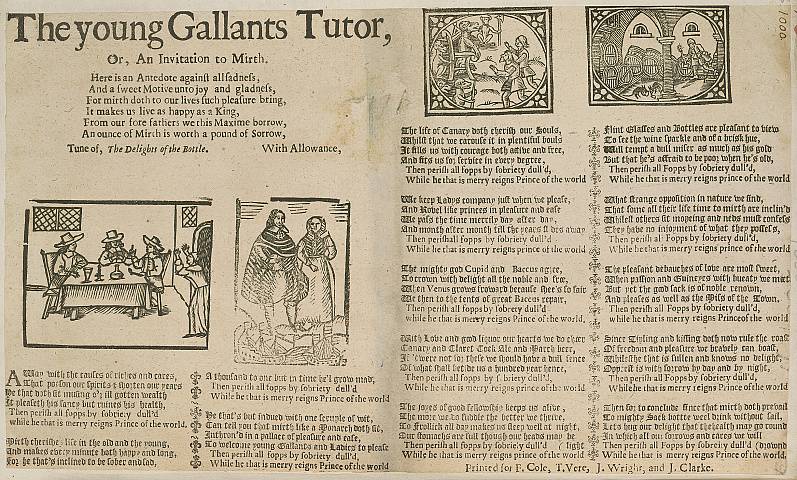 The young Gallants Tutor,
Or, An Invitation to Mirth.
Here is an Antedote against all sadness,
And a sweet Motive unto joy and gladness,
For mirth doth to our lives such pleasure bring,
It makes us live as happy as a King,
From our fore fathers we this Maxime borrow,
An ounce of Mirth is worth a pound of Sorrow,
Tune of, The Delights of the Bottle. With Allowance,
AWay with the causes of riches and cares,
That poison our spirits & shorten our years
He that doth sit musing o'r ill gotten wealth
It pleaseth his fancy but ruines his health,
Then perish all fopps by sobriety dull'd
while he that is merry reigns Prince of the world.
Mirth cherisheth life in the old and the young,
And makes every minute both happy and long,
For he that's inclined to be sober and sad,
A thousand to one but in time he'l grow mad,
Then perish all fopps by sobriety dull'd
While he that is merry reigns Prince of the world
He that's but indued with one scruple of wit,
Can tell you that mirth like a Monarch doth sit,
Inthron'd in a pallace of pleasure and ease,
To welcome young Gallants and Ladies to please
Then perish all fopps by sobriety dull'd,
While he that is merry reigns Prince of the world
The life of Canary doth cherish our Souls,
Whilst that we carouse it in plentiful bouls
It fills us with courage both active and free,
And fits us for service in every degree,
Then perish all fopps by sobriety dull'd,
While he that is merry reigns Prince of the world
We keep Ladys company just when we please,
And Revel like princes in pleasure and ease
We pass the time merrily day after day,
And month after month till the years slides away
Then perish all fopps by sobriety dull'd
While he that is merry reigns Prince of the world
The mighty god Cupid and Baccus agree,
To crown with delight all the noble and free,
When Venus grows froward because shee's so fair
We then to the tents of great Baccus repair,
Then perish all fopps by sobriety dull'd,
while he that is merry reigns Prince of the world,
With Love and good liquor our hearts we do cheer
Canary and Claret Cock Ale and March beer,
If 'twere not for these we should have a dull sence
Of what shall betide us a hundred year hence,
Then perish all fopps by sobriety dull'd,
While he that is merry reigns Prince of the world
The joyes of good fellowship keeps us alive,
The more we do fuddle the better we thrive,
To Frollick all day makes us sleep well at night,
Our stomachs are full though our heads may be light
Then perish all Fopps by sobriety dull'd
While he that is merry reigns Prince of the world
Flint Glasses and Bottles are pleasant to view
To see the wine sparkle and of a brisk hue,
Will tempt a dull miser as much as his gold
But that he's affraid to be poor when he's old,
Then perish all Fopps by sobriety dull'd,
While he that is merry reigns Prince of the world
What strange opposition in nature we find,
That some all their life time to mirth are inclin'd
Whilest others sit mopeing and neds must confess
They have no injoyment of what they possess,
Then perish all Fopps by sobriety dull'd,
While he that is merry reigns Prince of the world
The pleasant debauches of love are most sweet,
When passion and Guineyes with beauty we meet
But yet the god sack is of noble renown
And pleases as well as the Miss of the Town.
Then perish all Fopps by sobriety dull'd,
while he that is merry reigns Prince of the world
Since Tipling and kissing doth now rule the roast
Of freedom and pleasure we bravely can boast,
Whilest he that is sullen and knows no delight,
Opprest is with sorrow by day and by night,
Then perish all Fopps by sobriety dull'd,
While he that is merry reigns Prince of the world
Then for to conclude since that mirth doth prevail
To mighty Sack bottle weel drink without fail,
Lets hug our delight that the health may go round
In which all our sorrows and cares we will drownd
Then perish all Fopps by sobriety dull'd
While he that is merry reigns Prince of the world
Printed for F. Cole, T. Vere, J. Wright, and J. Clarke.